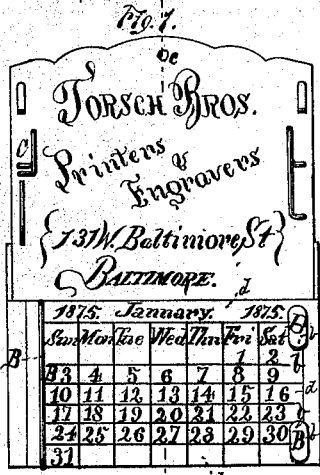 Fig. 1.
e
TORSCH BROS.
C
Printers &
Engravers
{131 W. Baltimore St}
BALTIMORE.
d
1875. January. 1875. D
Sun Mon Tue Wed Thu Fri Sat b
B 1 2 b
B3 4 5 6 7 8 9
10 11 12 13 14 15 16 d
17 18 19 20 21 22 23
24 25 26 27 28 29 30 B b
31